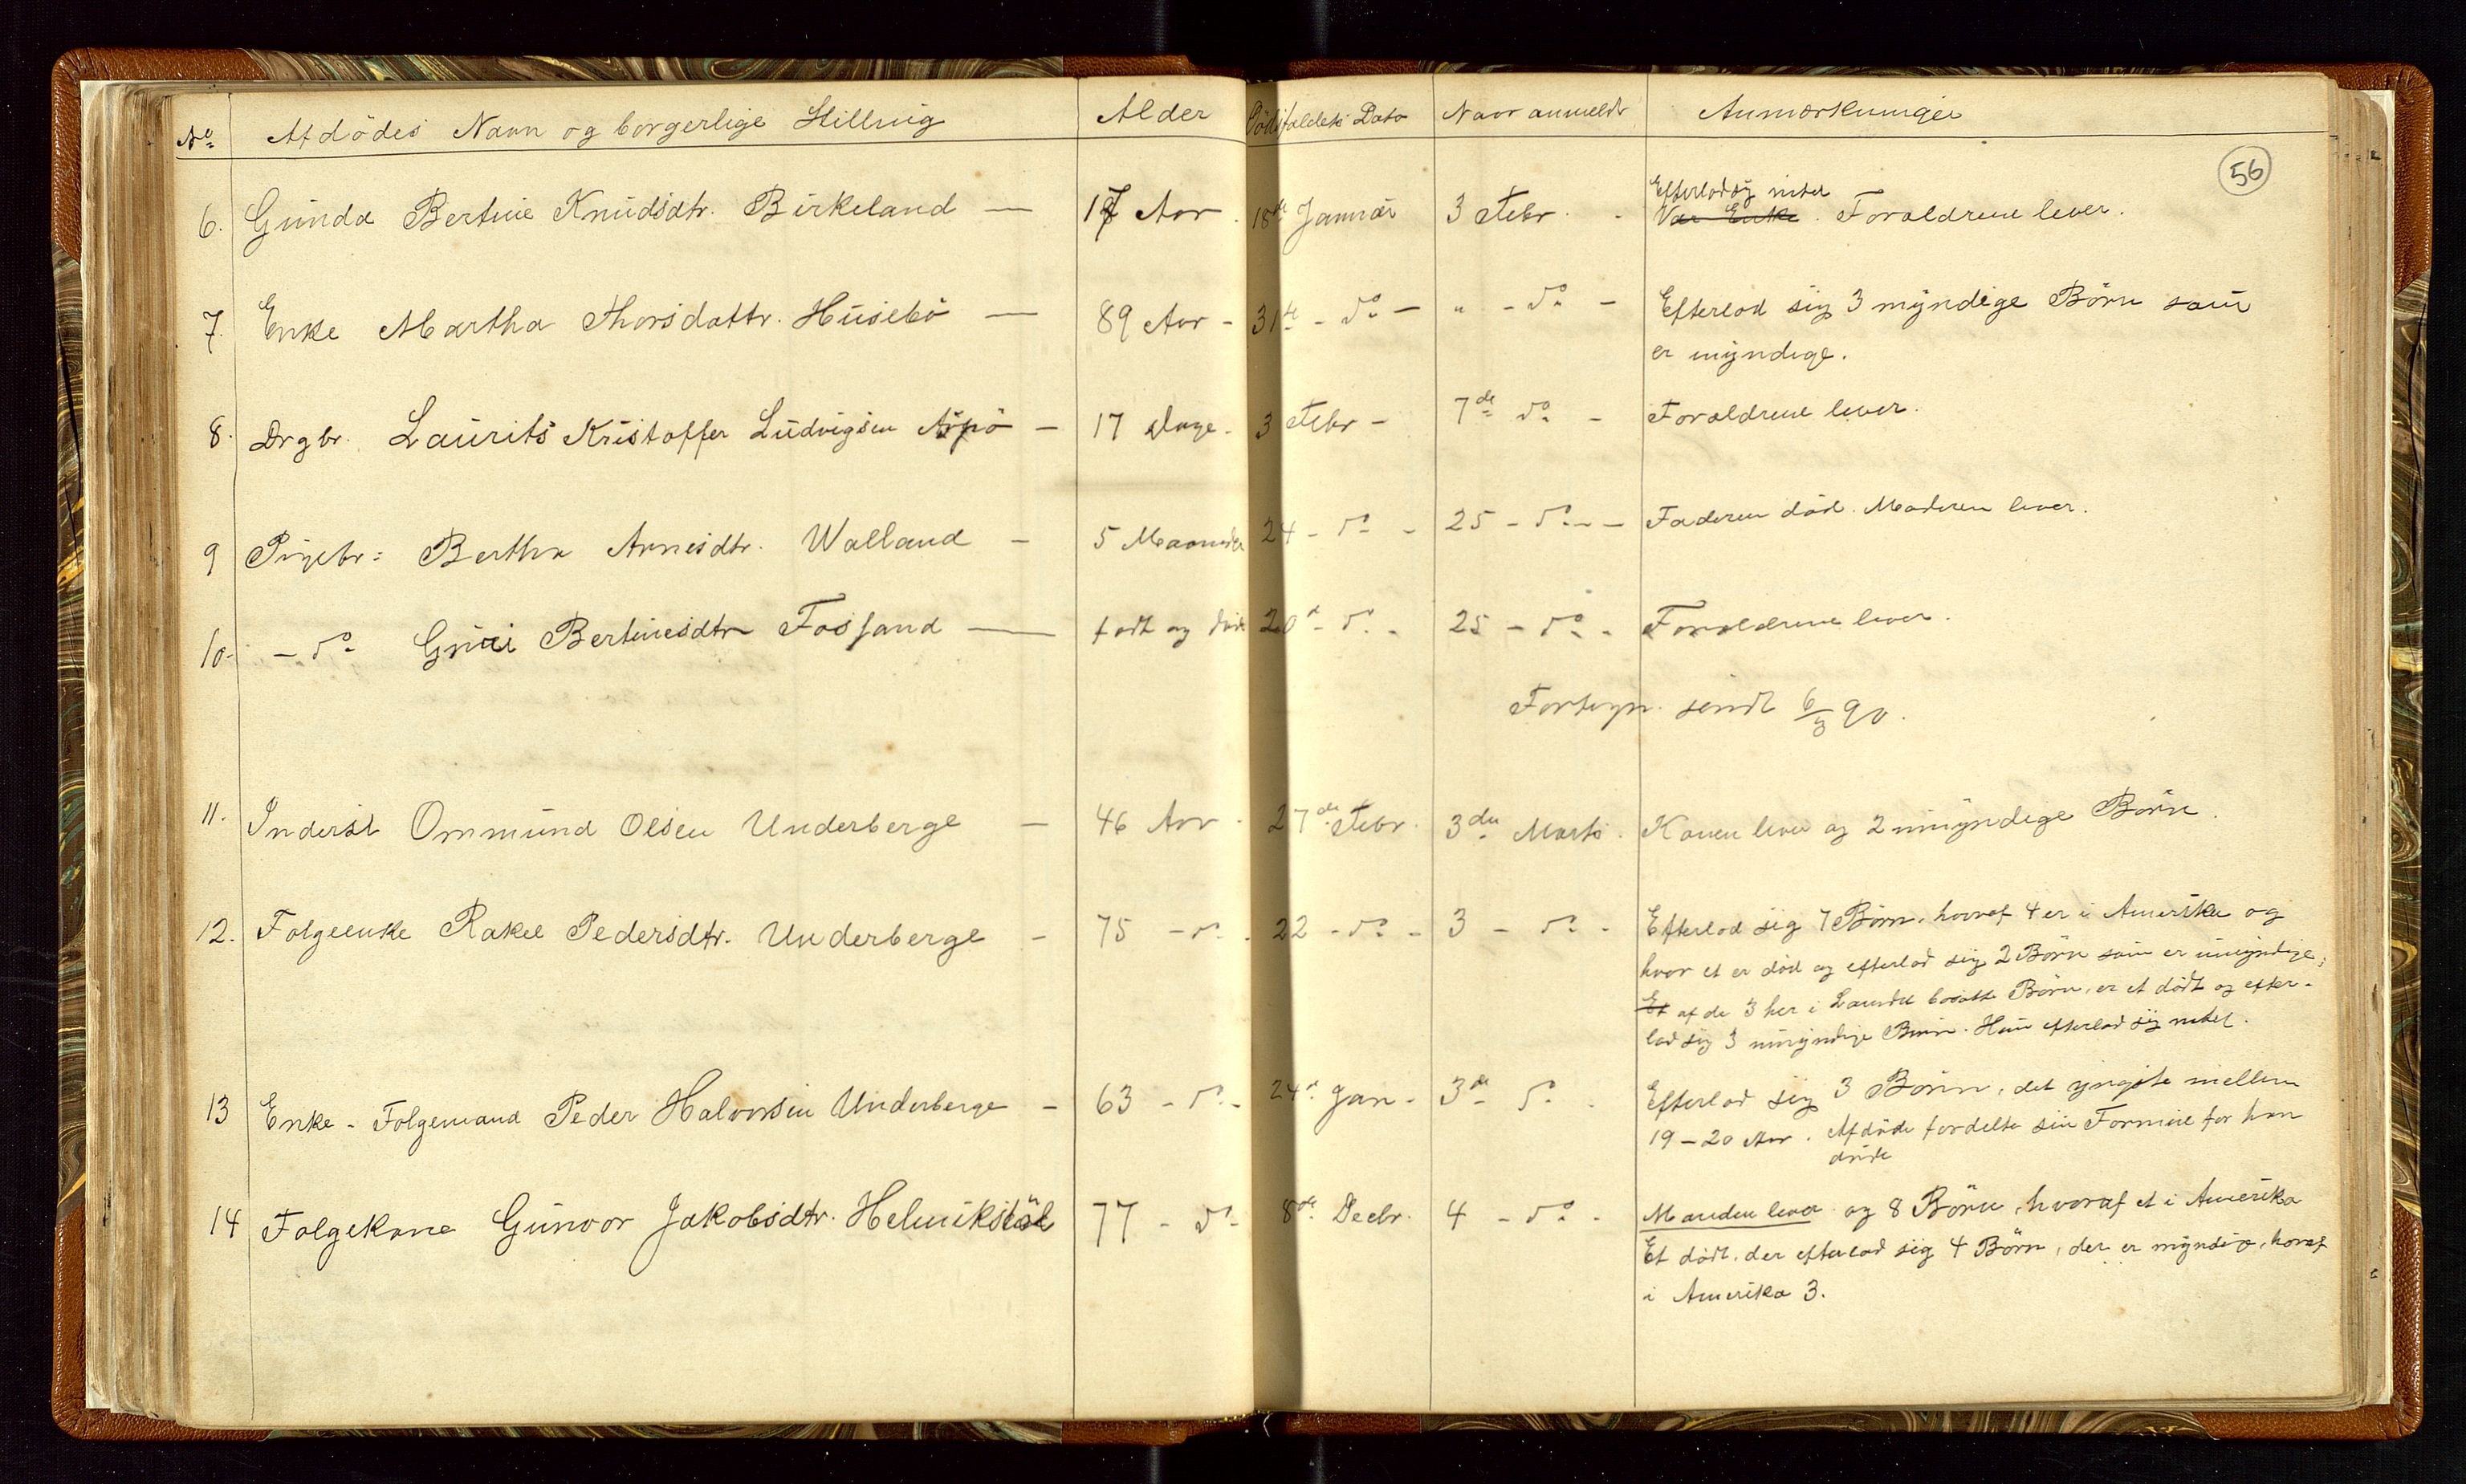 No Afdödes Navn og borgerlige Stilling Alder Dödsfaldets Dato Naar anmeldt Anmærkninger
56
Efterlod sig intet
6. Gunda Bertine Knudsdtr. Birkeland — 17 Aar. 18de Januar 3 Febr. - Var Enke. Forældrene lever.
7. Enke Martha Thorsdattr. Husebö — 89 Aar - 31te - do - " - do - Efterlod sig 3 myndige Börn som
er myndige.
8. Drgbr. Laurits Kristoffer Ludvigsen - 17 Dage. 3 Febr - 7de do - Forældrene lever.
9 Pigebr: Bertha Arnesdtr. Walland - 5 Maaneder 24 - do - 25 - do - - Faderen död. Moderen lever.
10. - do Guri Bertinesdtr Fossand — födt og död 20d - do - 25 - do - Forældrene lever.
Fortegn. sendt 6/3 90.
11. Inderst Ommund Olsen Underberge - 46 Aar - 27de Febr. 3die Marts. Konen lever og 2 umyndige Börn.
12. Folgeenke Rakel Pedersdtr. Underberge - 75 - do - 22 - do - 3 - do - Efterlod sig 7 Börn, hvoraf 4 er i Amerika og
hvor et er död og efterlod sig 2 Börn som er umyndige;
Et af de 3 her i Landet bosatte Börn, er et dödt og efter-
lod sig 3 umyndige Börn. Hun efterlod sig intet.
13 Enke - Folgemand Peder Halvorsen Underberge - 63 - do - 24d Jan - 3de do - Efterlod sig 3 Börn, det yngste mellem
19 - 20 Aar. Afdöde fordelte sin Formue för han
döde
14 Folgekone Gunvor Jakobsdtr. Helmikstöl 77 - do - 8de Decbr. 4 - do - Manden lever og 8 Börn, hvoraf et i Amerika
Et dödt, der efterlod sig 4 Börn, der er myndige, hvoraf
i Amerika 3.